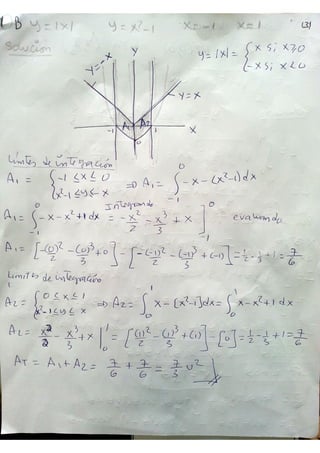 B y=|x| y=x²-1 x=-1 x=1 (3)
Solución
y=|x|= { x si x≥0
-x si x<0
y=-x Y
y=x
A₁ A₂
-1 0 1 X
Límites de integración
A₁ = { -1≤x≤0
x²-1≤y≤-x ⇒ A₁ = ∫₋₁⁰ -x-(x²-1)dx
Integrando
A₁ = ∫₋₁⁰ -x-x²+1 dx = -x²/2 - x³/3 + x ]₋₁⁰ evaluando
A₁ = [-(0)²/2 - (0)³/3 + 0] - [-(-1)²/2 - (-1)³/3 + (-1)] = 1/2 - 1/3 + 1 = 7/6
Límites de integración
A₂ = { 0≤x≤1
x²-1≤y≤x ⇒ A₂ = ∫₀¹ x-(x²-1)dx = ∫₀¹ x-x²+1 dx
A₂ = x²/2 - x³/3 + x |₀¹ = [(1)²/2 - (1)³/3 + (1)] - [0] = 1/2 - 1/3 + 1 = 7/6
AT = A₁+A₂ = 7/6 + 7/6 = 7/3 u²